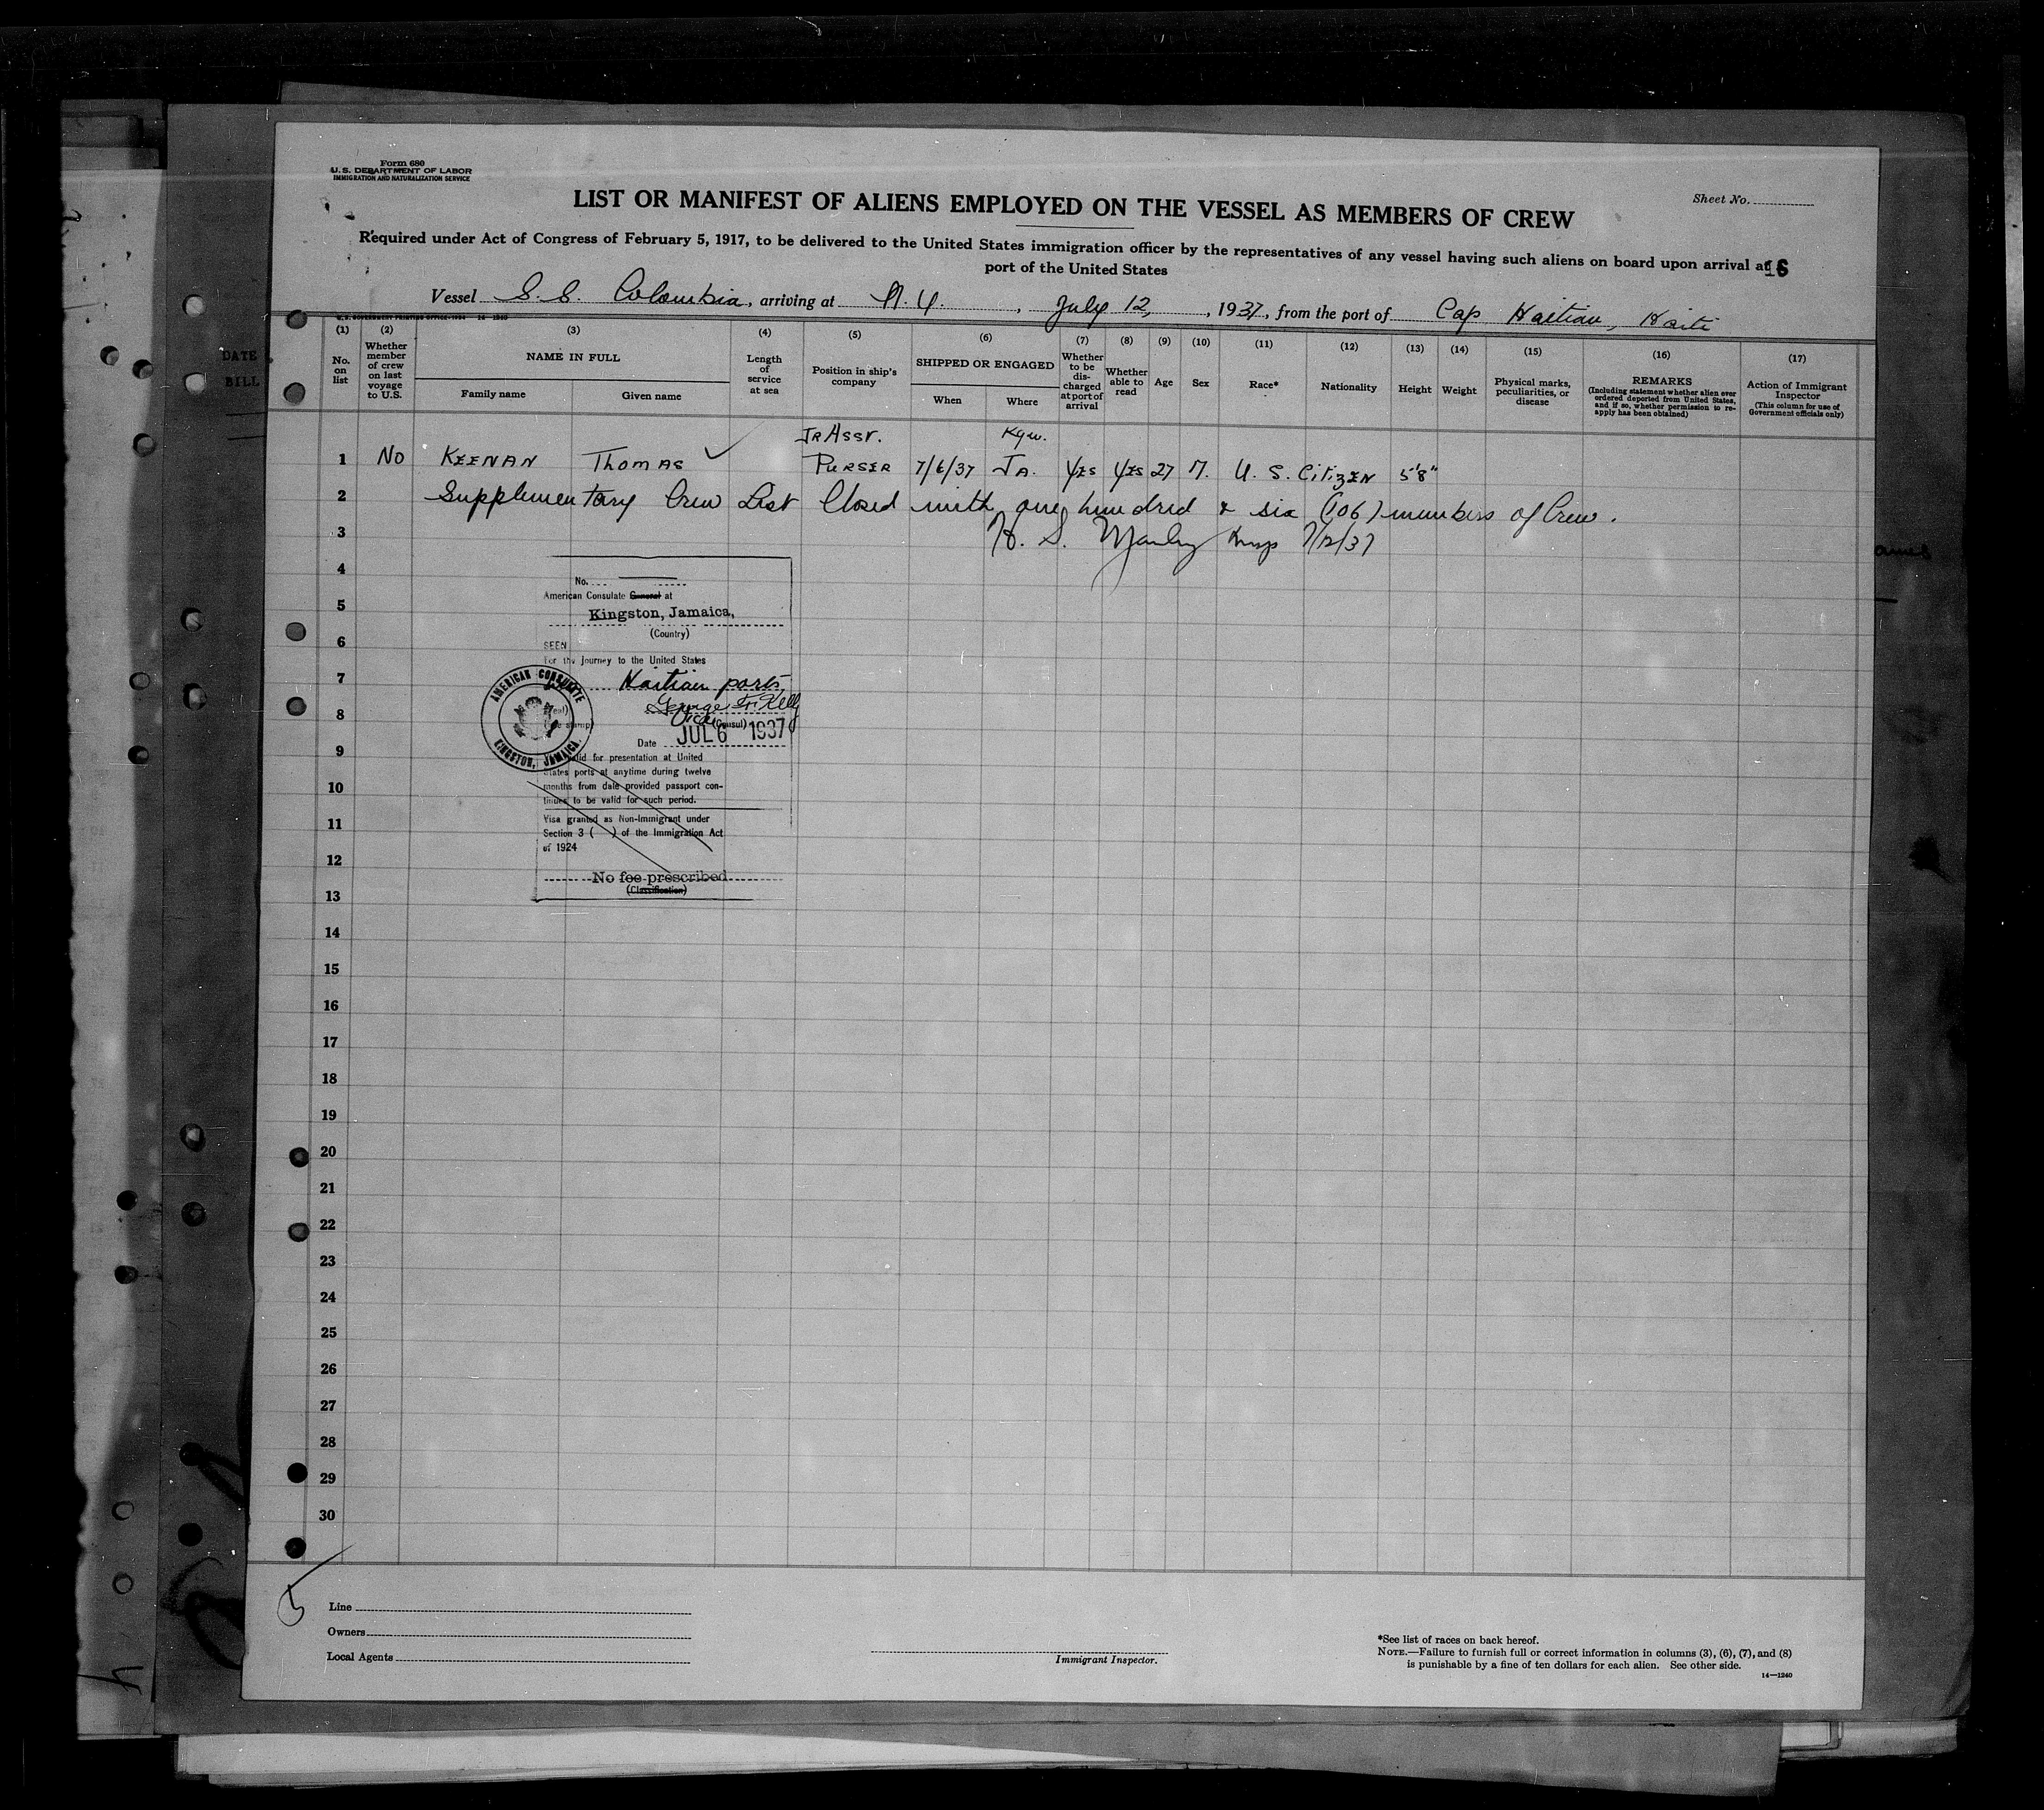 Form 680
U. S. DEPARTMENT OF LABOR
IMMIGRATION AND NATURALIZATION SERVICE
Sheet No.
LIST OR MANIFEST OF ALIENS EMPLOYED ON THE VESSEL AS MEMBERS OF CREW
Required under Act of Congress of February 5, 1917, to be delivered to the United States immigration officer by the representatives of any vessel having such aliens on board upon arrival at a
port of the United States
Vessel S. S. Colombia, arriving at N. Y., July 12, 1937, from the port of Cap Haitian, Haiti
DATE
BILL
(1) (2) (3) (4) (5) (6) (7) (8) (9) (10) (11) (12) (13) (14) (15) (16) (17)
No. on list
Whether member of crew on last voyage to U.S.
NAME IN FULL
Family name
Given name
Length of service at sea
Position in ship's company
SHIPPED OR ENGAGED
When
Where
Whether to be discharged at port of arrival
Whether able to read
Age
Sex
Race*
Nationality
Height
Weight
Physical marks, peculiarities, or disease
REMARKS
(Including statement whether alien ever ordered deported from United States, and if so, whether permission to reapply has been obtained)
Action of Immigrant Inspector
(This column for use of Government officials only)
JR ASST. KGN.
1 NO KEENAN THOMAS PURSER 7/6/37 JA. YES YES 27 M. U. S. CITIZEN 5'8"
2 Supplementary Crew List Closed with one hundred & six (106) members of Crew.
3 H. S. 7/12/37
4
5
6
7
8
9
10
11
12
13
14
15
16
17
18
19
20
21
22
23
24
25
26
27
28
29
30
No.
American Consulate General at
Kingston, Jamaica,
(Country)
SEEN
For the journey to the United States
Haitian ports
George F. Kelly
Vice (Consul)
Date JUL 6 1937
Valid for presentation at United
States ports at anytime during twelve
months from date provided passport con-
tinues to be valid for such period.
Visa granted as Non-Immigrant under
Section 3 ( ) of the Immigration Act
of 1924
No fee prescribed
(Classification)
AMERICAN CONSULATE
KINGSTON, JAMAICA.
Line
Owners
Local Agents
Immigrant Inspector.
*See list of races on back hereof.
NOTE.—Failure to furnish full or correct information in columns (3), (6), (7), and (8)
is punishable by a fine of ten dollars for each alien. See other side.
14—1240